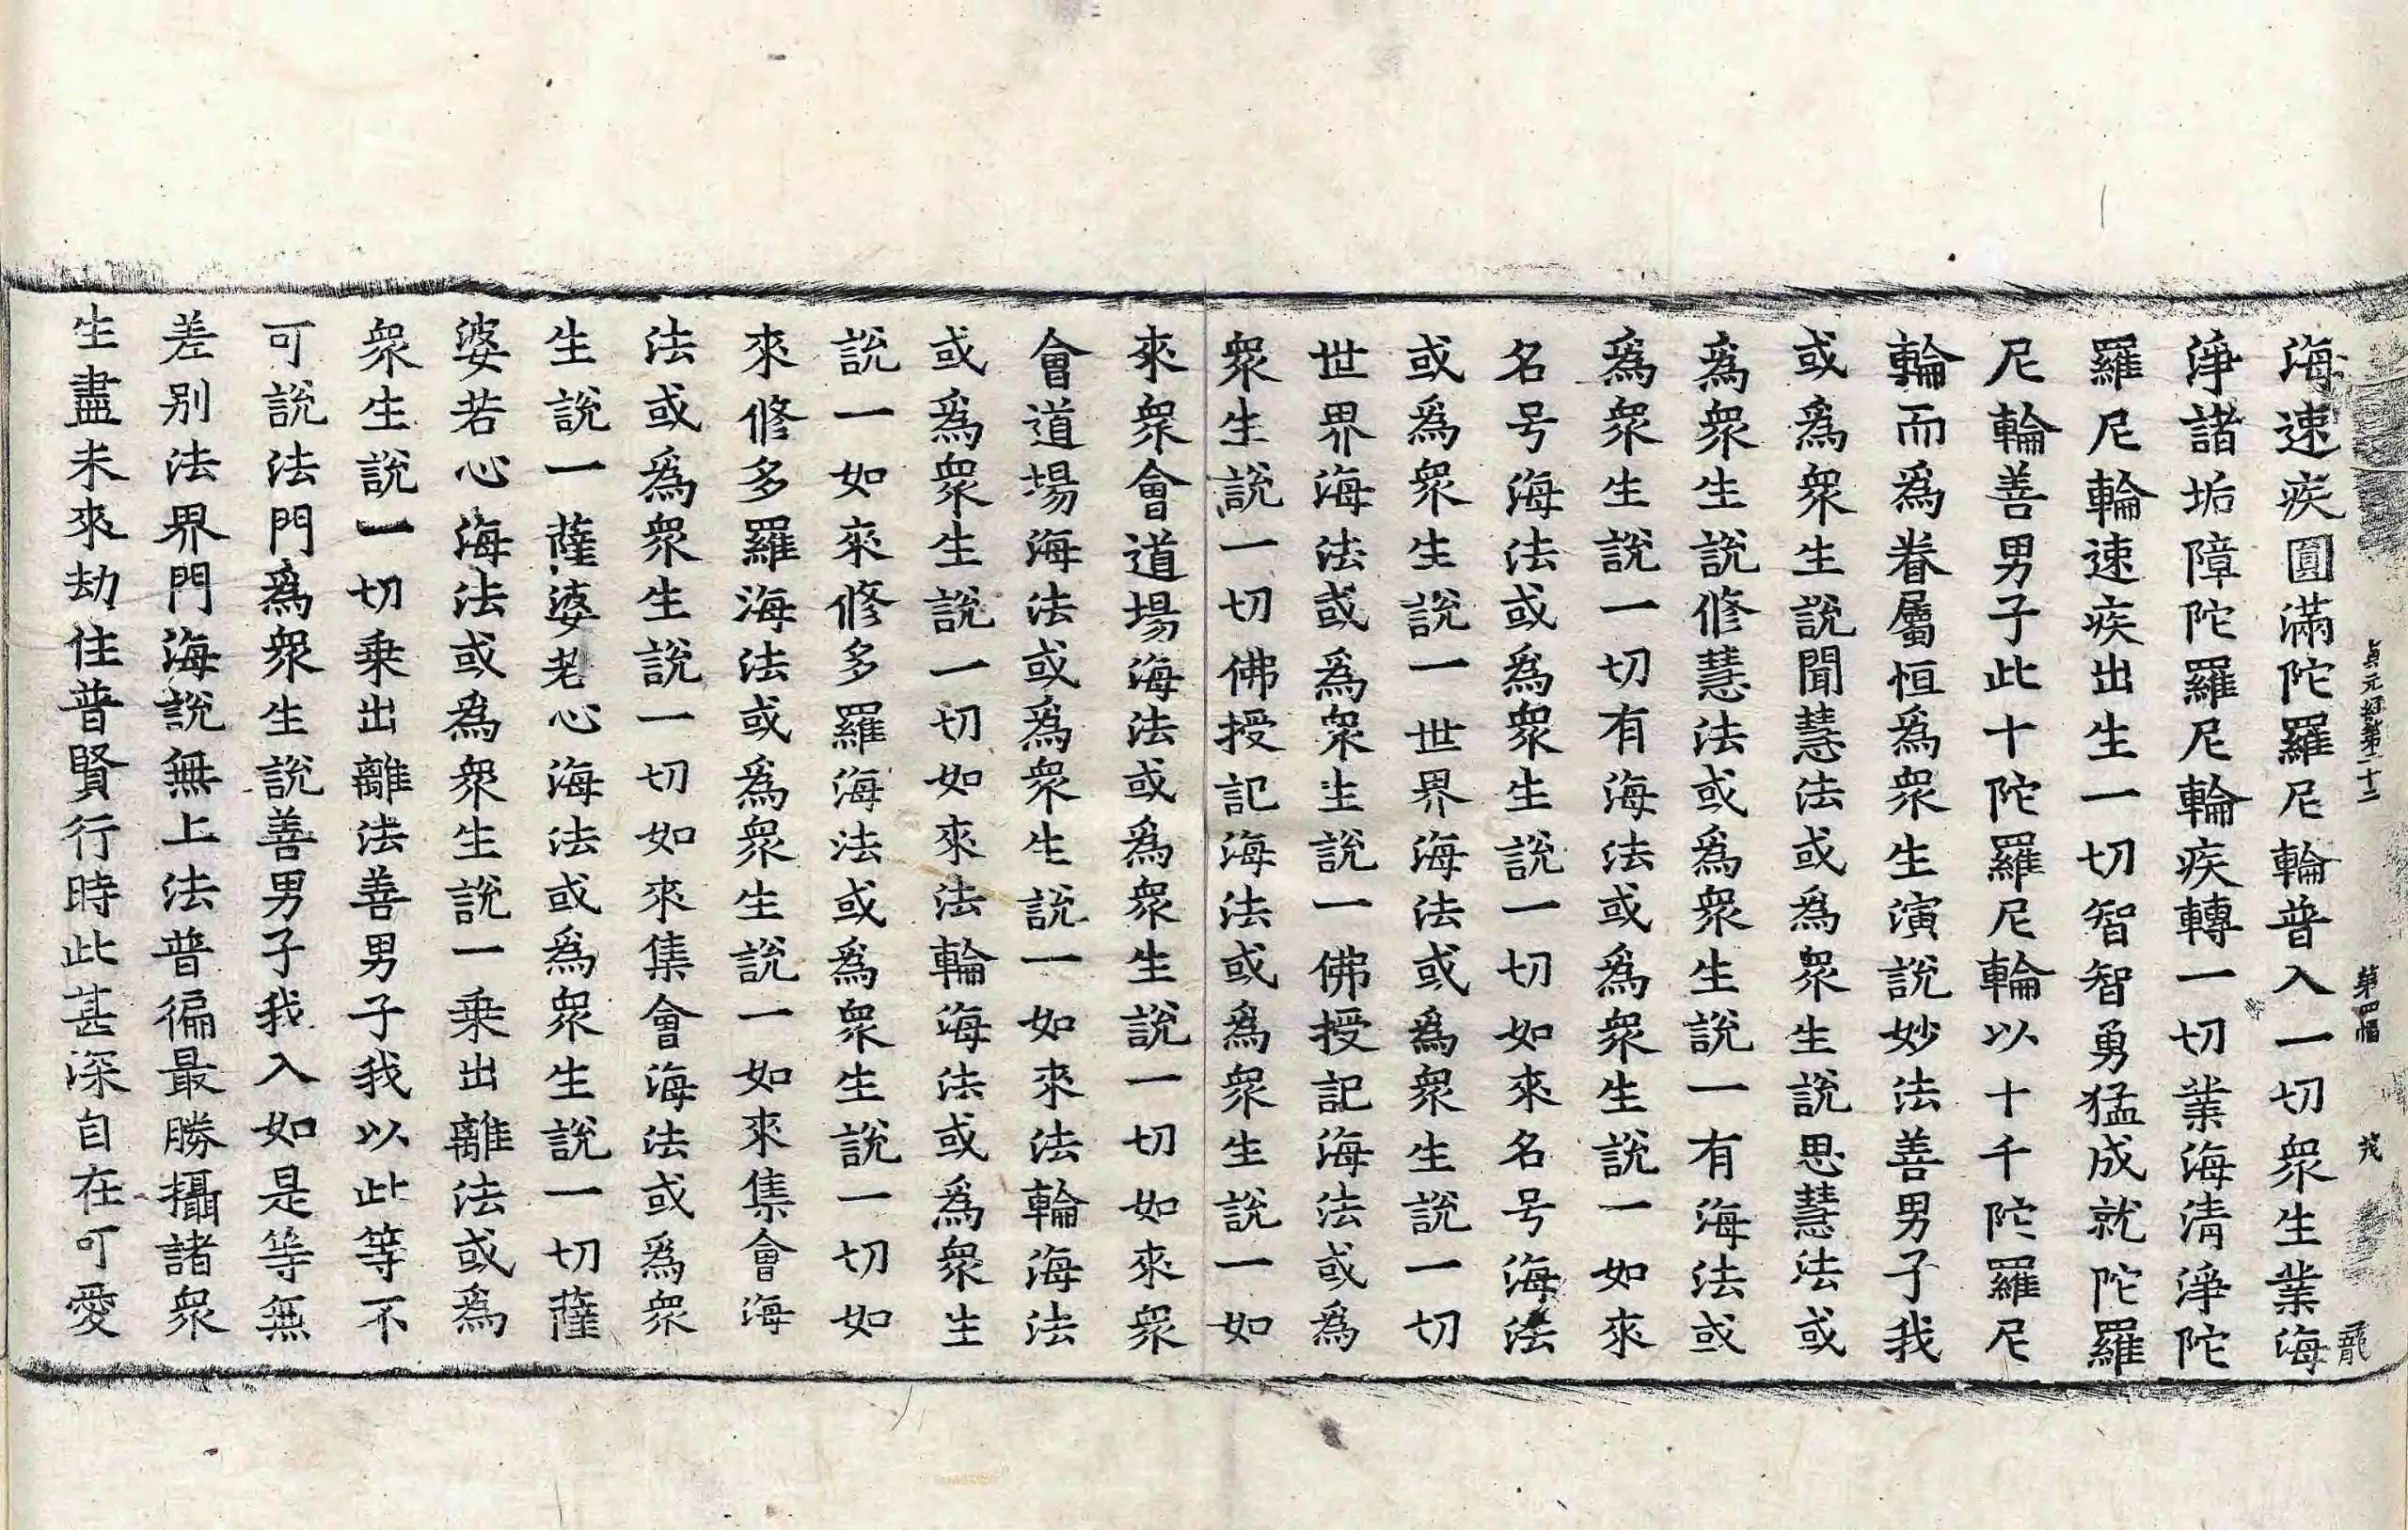 貞元經第二十二　第四幅　茂　龍
海速疾圓滿陀羅尼輪普入一切衆生業海
淨諸垢障陀羅尼輪疾轉一切業海清淨陀
羅尼輪速疾出生一切智智勇猛成就陀羅
尼輪善男子此十陀羅尼輪以十千陀羅尼
輪而爲眷屬恒爲衆生演說妙法善男子我
或爲衆生說聞慧法或爲衆生說思慧法或
爲衆生說修慧法或爲衆生說一有海法或
爲衆生說一切有海法或爲衆生說一如來
名号海法或爲衆生說一切如來名号海法
或爲衆生說一世界海法或爲衆生說一切
世界海法或爲衆生說一佛授記海法或爲
衆生說一切佛授記海法或爲衆生說一如
來衆會道場海法或爲衆生說一切如來衆
會道場海法或爲衆生說一如來法輪海法
或爲衆生說一切如來法輪海法或爲衆生
說一如來修多羅海法或爲衆生說一切如
來修多羅海法或爲衆生說一如來集會海
法或爲衆生說一切如來集會海法或爲衆
生說一薩婆若心海法或爲衆生說一切薩
婆若心海法或爲衆生說一乗出離法或爲
衆生說一切乗出離法善男子我以此等不
可說法門爲衆生說善男子我入如是等無
差別法界門海說無上法普徧最勝攝諸衆
生盡未來劫住普賢行時此甚深自在可愛